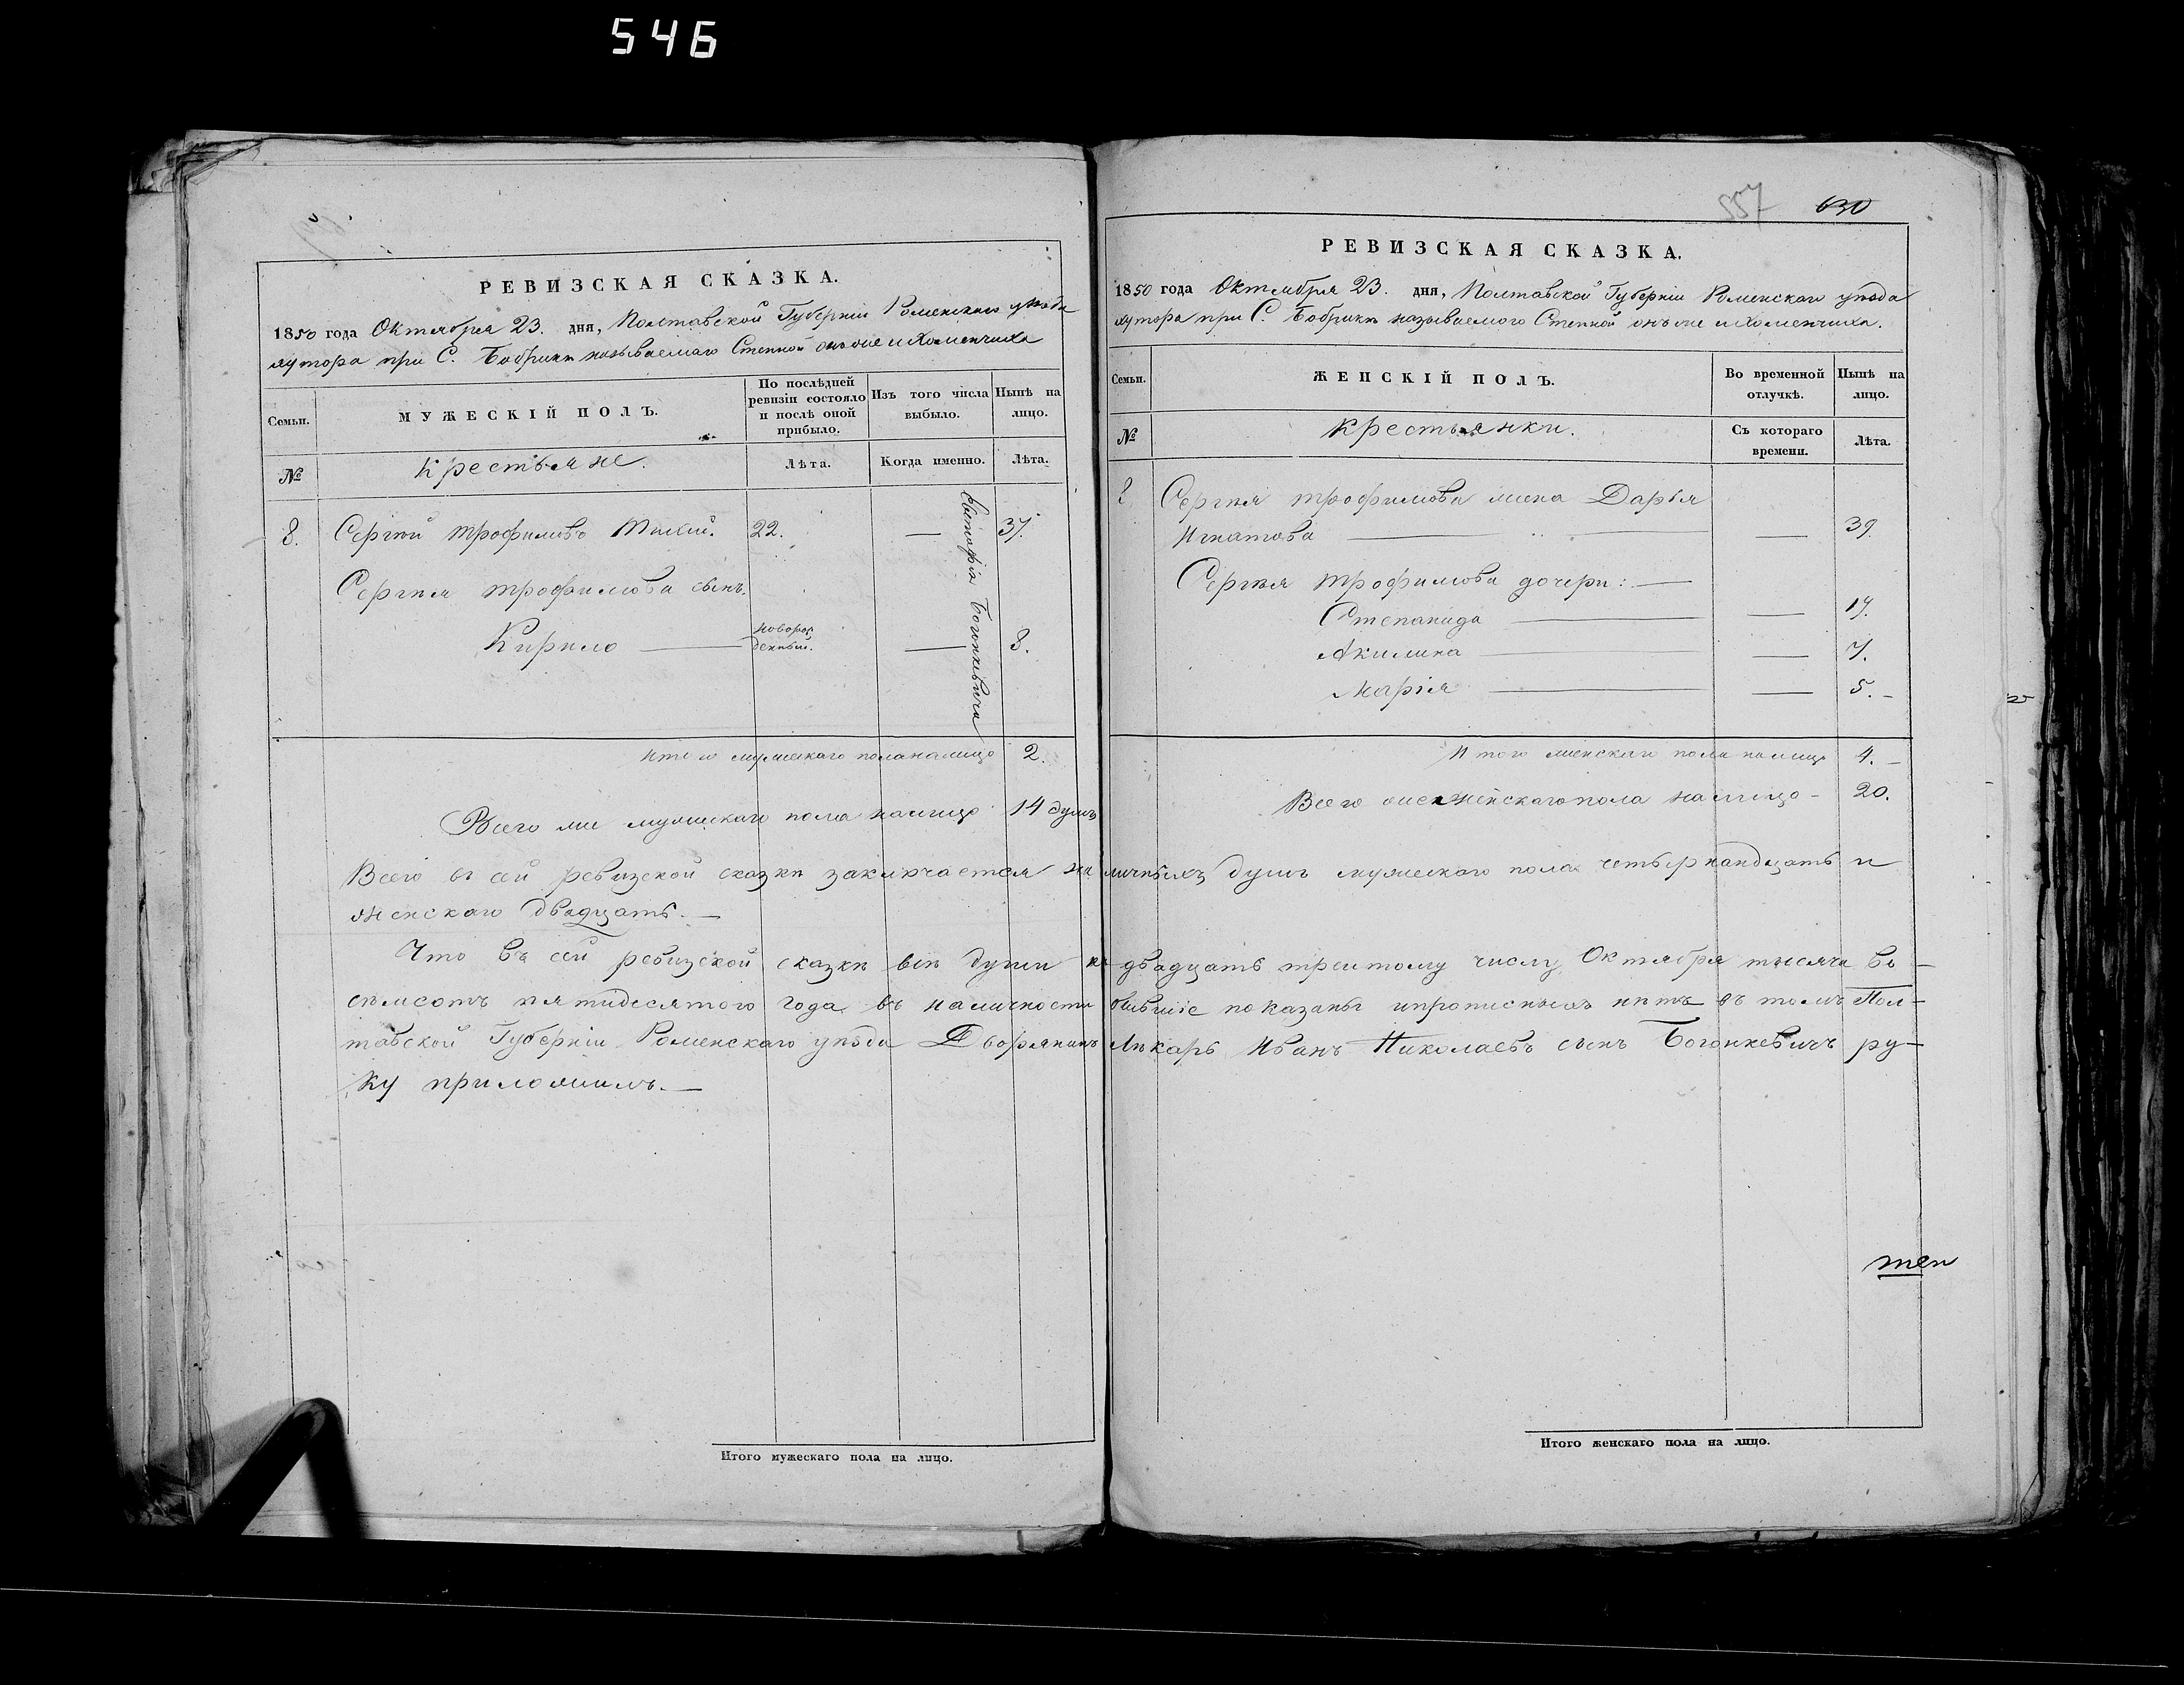 546
РЕВИЗСКАЯ СКАЗКА.
1850 года Октября 23. дня, Полтавской Губерніи Роменскаго уѣзда
хутора при С. Бобрикѣ называемаго Степной онъ же и Хоменчиха
Семьи.
МУЖЕСКІЙ ПОЛЪ.
По послѣдней ревизіи состояло и послѣ оной прибыло.
Изъ того числа выбыло.
Нынѣ на лицо.
№
Крестьяне.
Лѣта.
Когда именно.
Лѣта.
8. Сергѣй Трофимовъ 22. — 37.
Сергѣя Трофимова сынъ.
Кирило — новорожденный. — 8.
Богонкевича
Итого мужескаго пола налицо 2.
Всего же мужескаго пола налицо 14 душъ
557 630
РЕВИЗСКАЯ СКАЗКА.
1850 года Октября 23. дня, Полтавской Губерніи Роменскаго уѣзда
хутора при С. Бобрикѣ называемого Степной онъ же и Хоменчиха.
Семьи.
ЖЕНСКІЙ ПОЛЪ.
Во временной отлучкѣ.
Нынѣ на лицо.
№
Крестьянки.
Съ котораго времени.
Лѣта.
8 Сергѣя Трофимова жена Дарья
Игнатова — — 39.
Сергѣя Трофимова дочери: —
Степанида — — 17.
Акилина — — 7.
Марія — — 5. —
Итого женскаго пола налицо 4. —
Всего женскаго пола налицо — 20.
Всего въ сей ревизской сказкѣ заключается наличныхъ душъ мужескаго пола четырнандцать и
женскаго двадцать. —
Что въ сей ревизской сказкѣ всѣ души къ двадцать третьому числу Октября тысяча во-
семьсотъ пятидесятого года въ наличности бывшіе показаны и прописныхъ нѣтъ въ томъ Пол-
тавской Губерніи Роменскаго уѣзда Дворянинъ Лѣкарь Иванъ Николаевъ сынъ Богонкевичъ ру-
ку приложилъ. —
Итого мужескаго пола на лицо.
Итого женскаго пола на лицо.